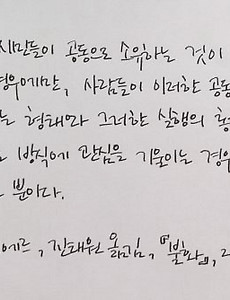 시민들이 공동으로 소유하는 것이
경우에만, 사람들이 이러한 공동
는 형태와 그러한 실행의 형
방식에 관심을 기울이는 경우
뿐이다.
에르, 진태원 옮김, 『불화』,